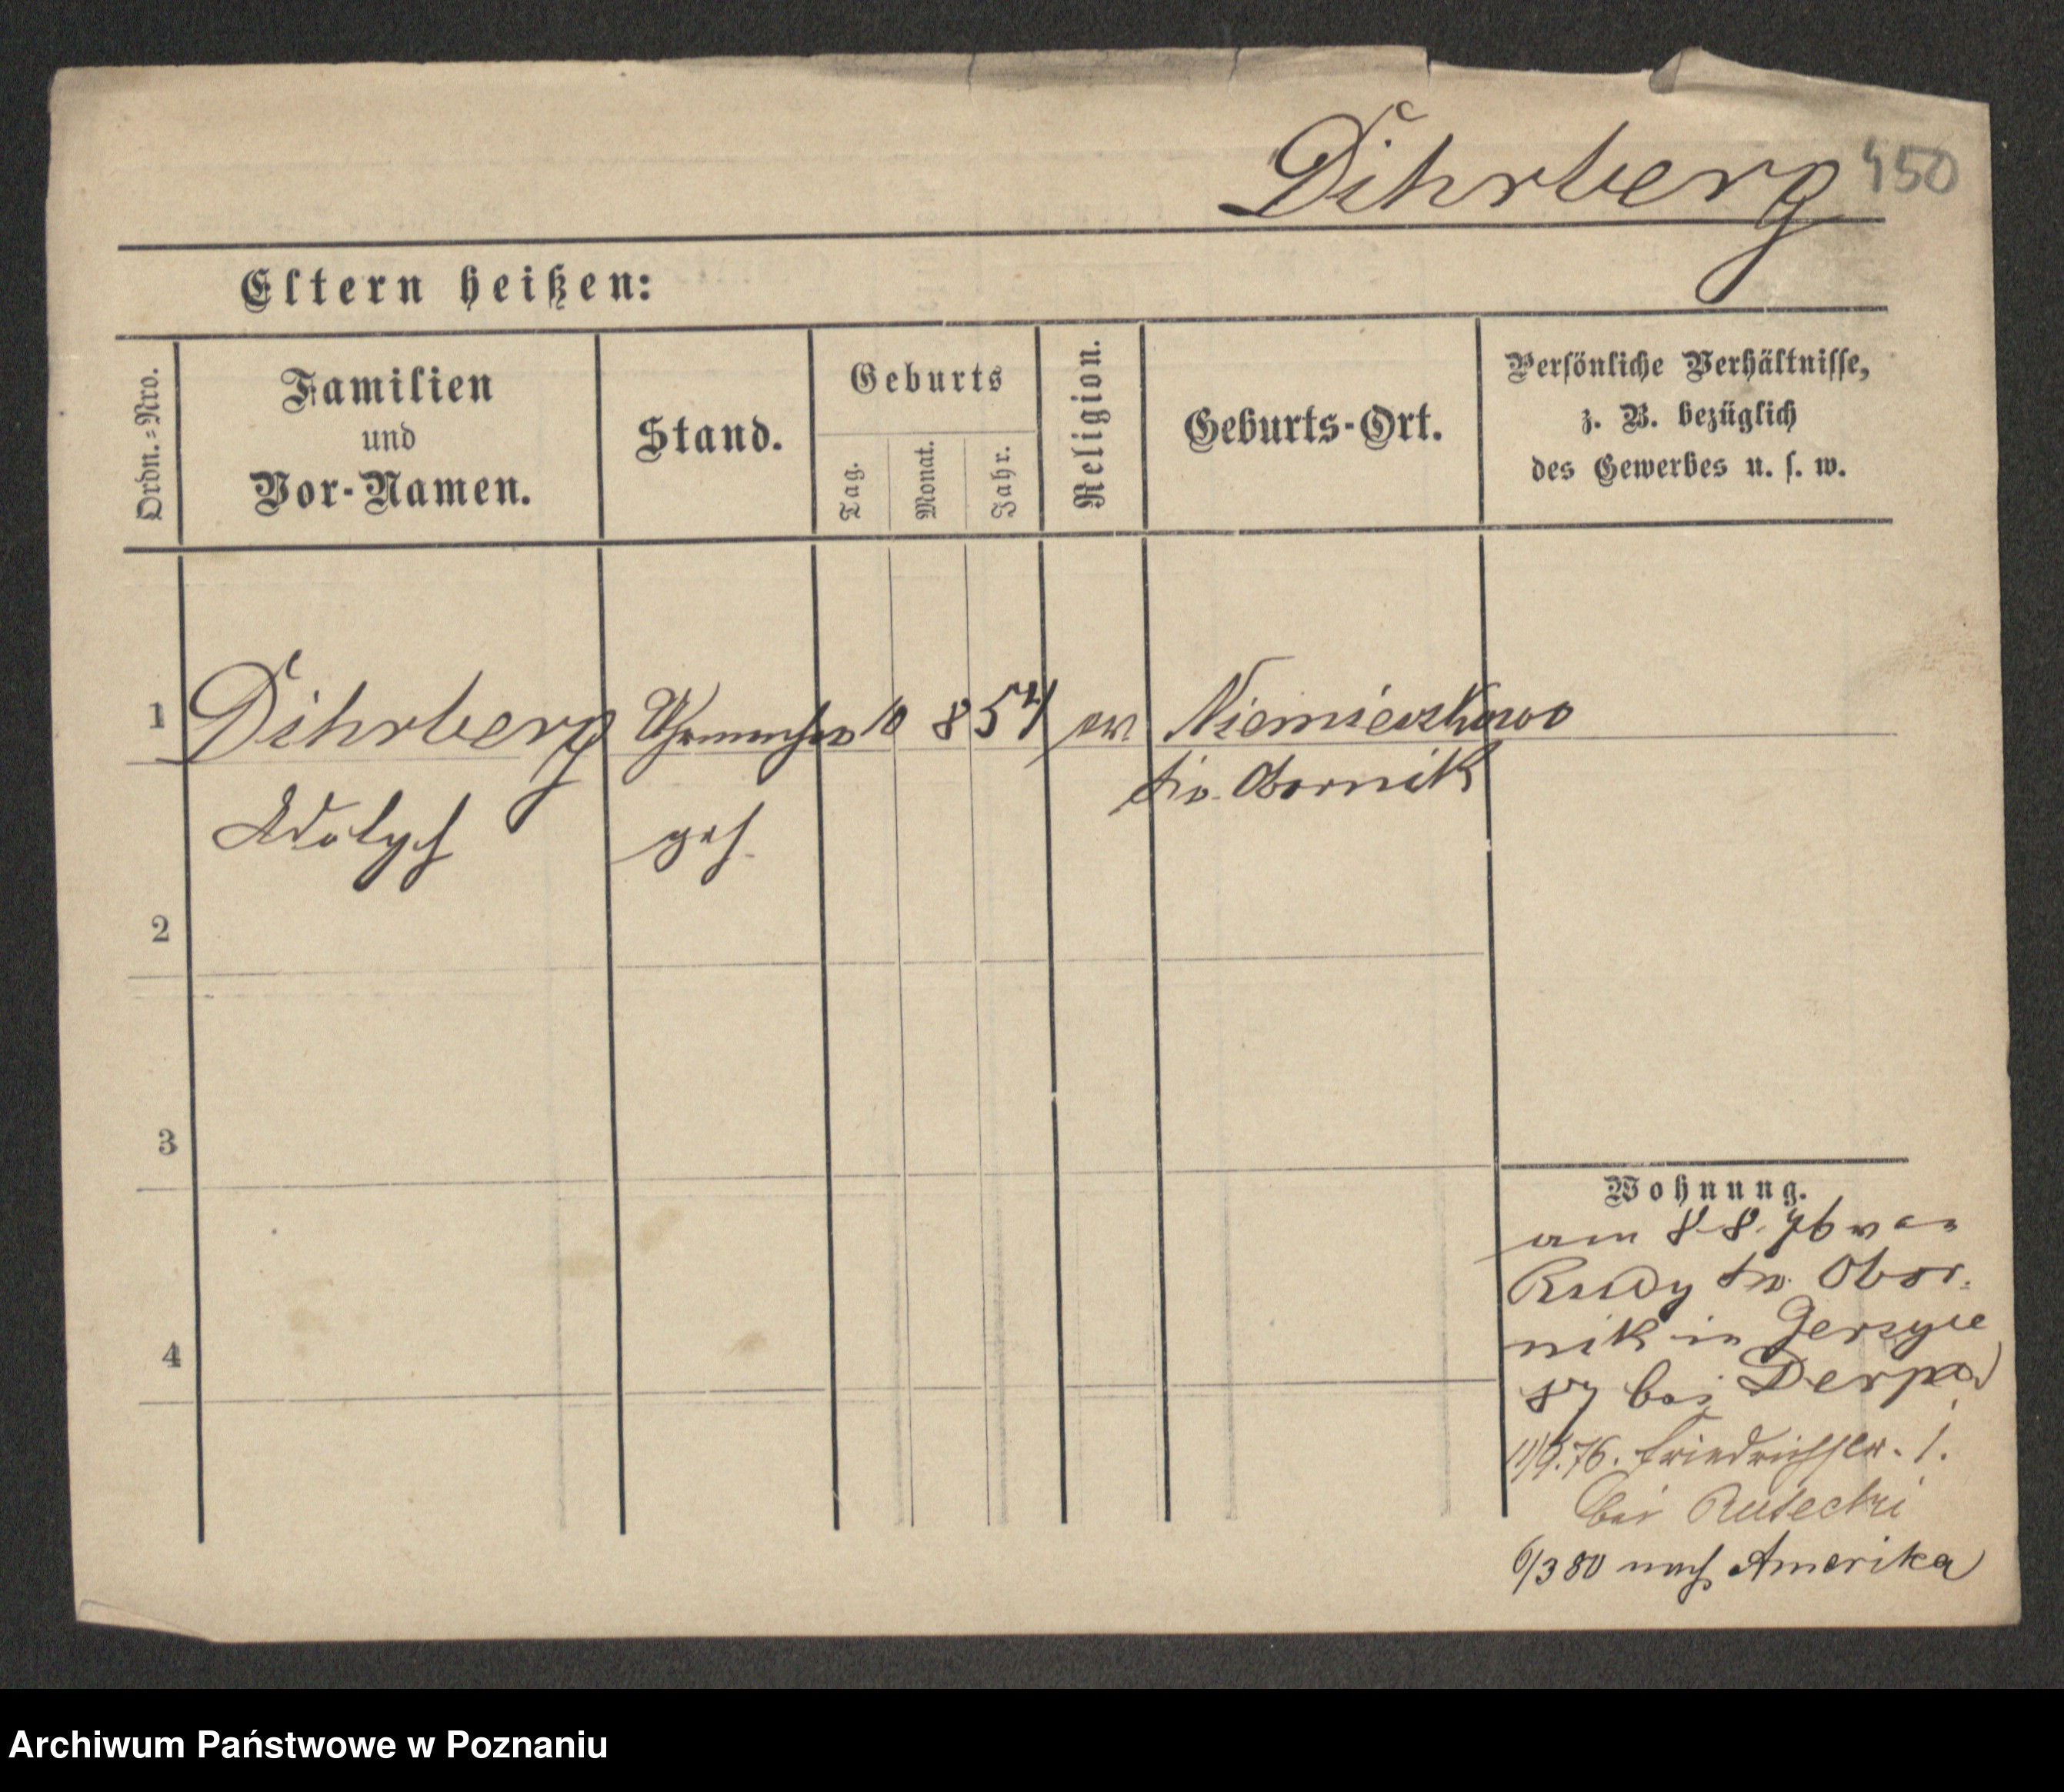 Dihrberg 450
Eltern heißen:
Ordn.-Nro.
Familien
und
Vor-Namen.
Stand.
Geburts
Tag.
Monat.
Jahr.
Religion.
Geburts-Ort.
Persönliche Verhältnisse,
z. B. bezüglich
des Gewerbes u. s. w.
1 Dihrberg Uhrmacher 10 8 54 ev Niemieczkowo
Adolph geh. Kr. Obornik
2
3
4
Wohnung.
am 8 8. 76 von
Rudy Kr. Obor-
nik in Jerzyce
87 bei
11/9. 76. Friedrichstr. 1.
bei Rutecki
6/3 80 nach Amerika
Archiwum Państwowe w Poznaniu